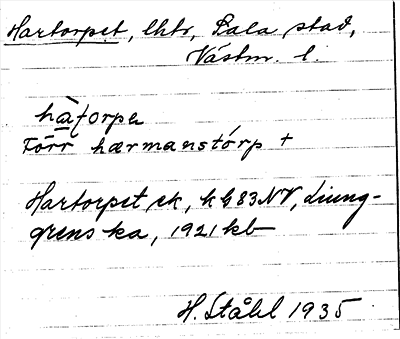 Hartorpet, lhtr, Sala stad,
Västm. l.
hàtorpa
Förr hærmanstórp +
Hartorpet ek, kG83NV, Ljung-
grens ka, 1921 kb
H. Ståhl 1935